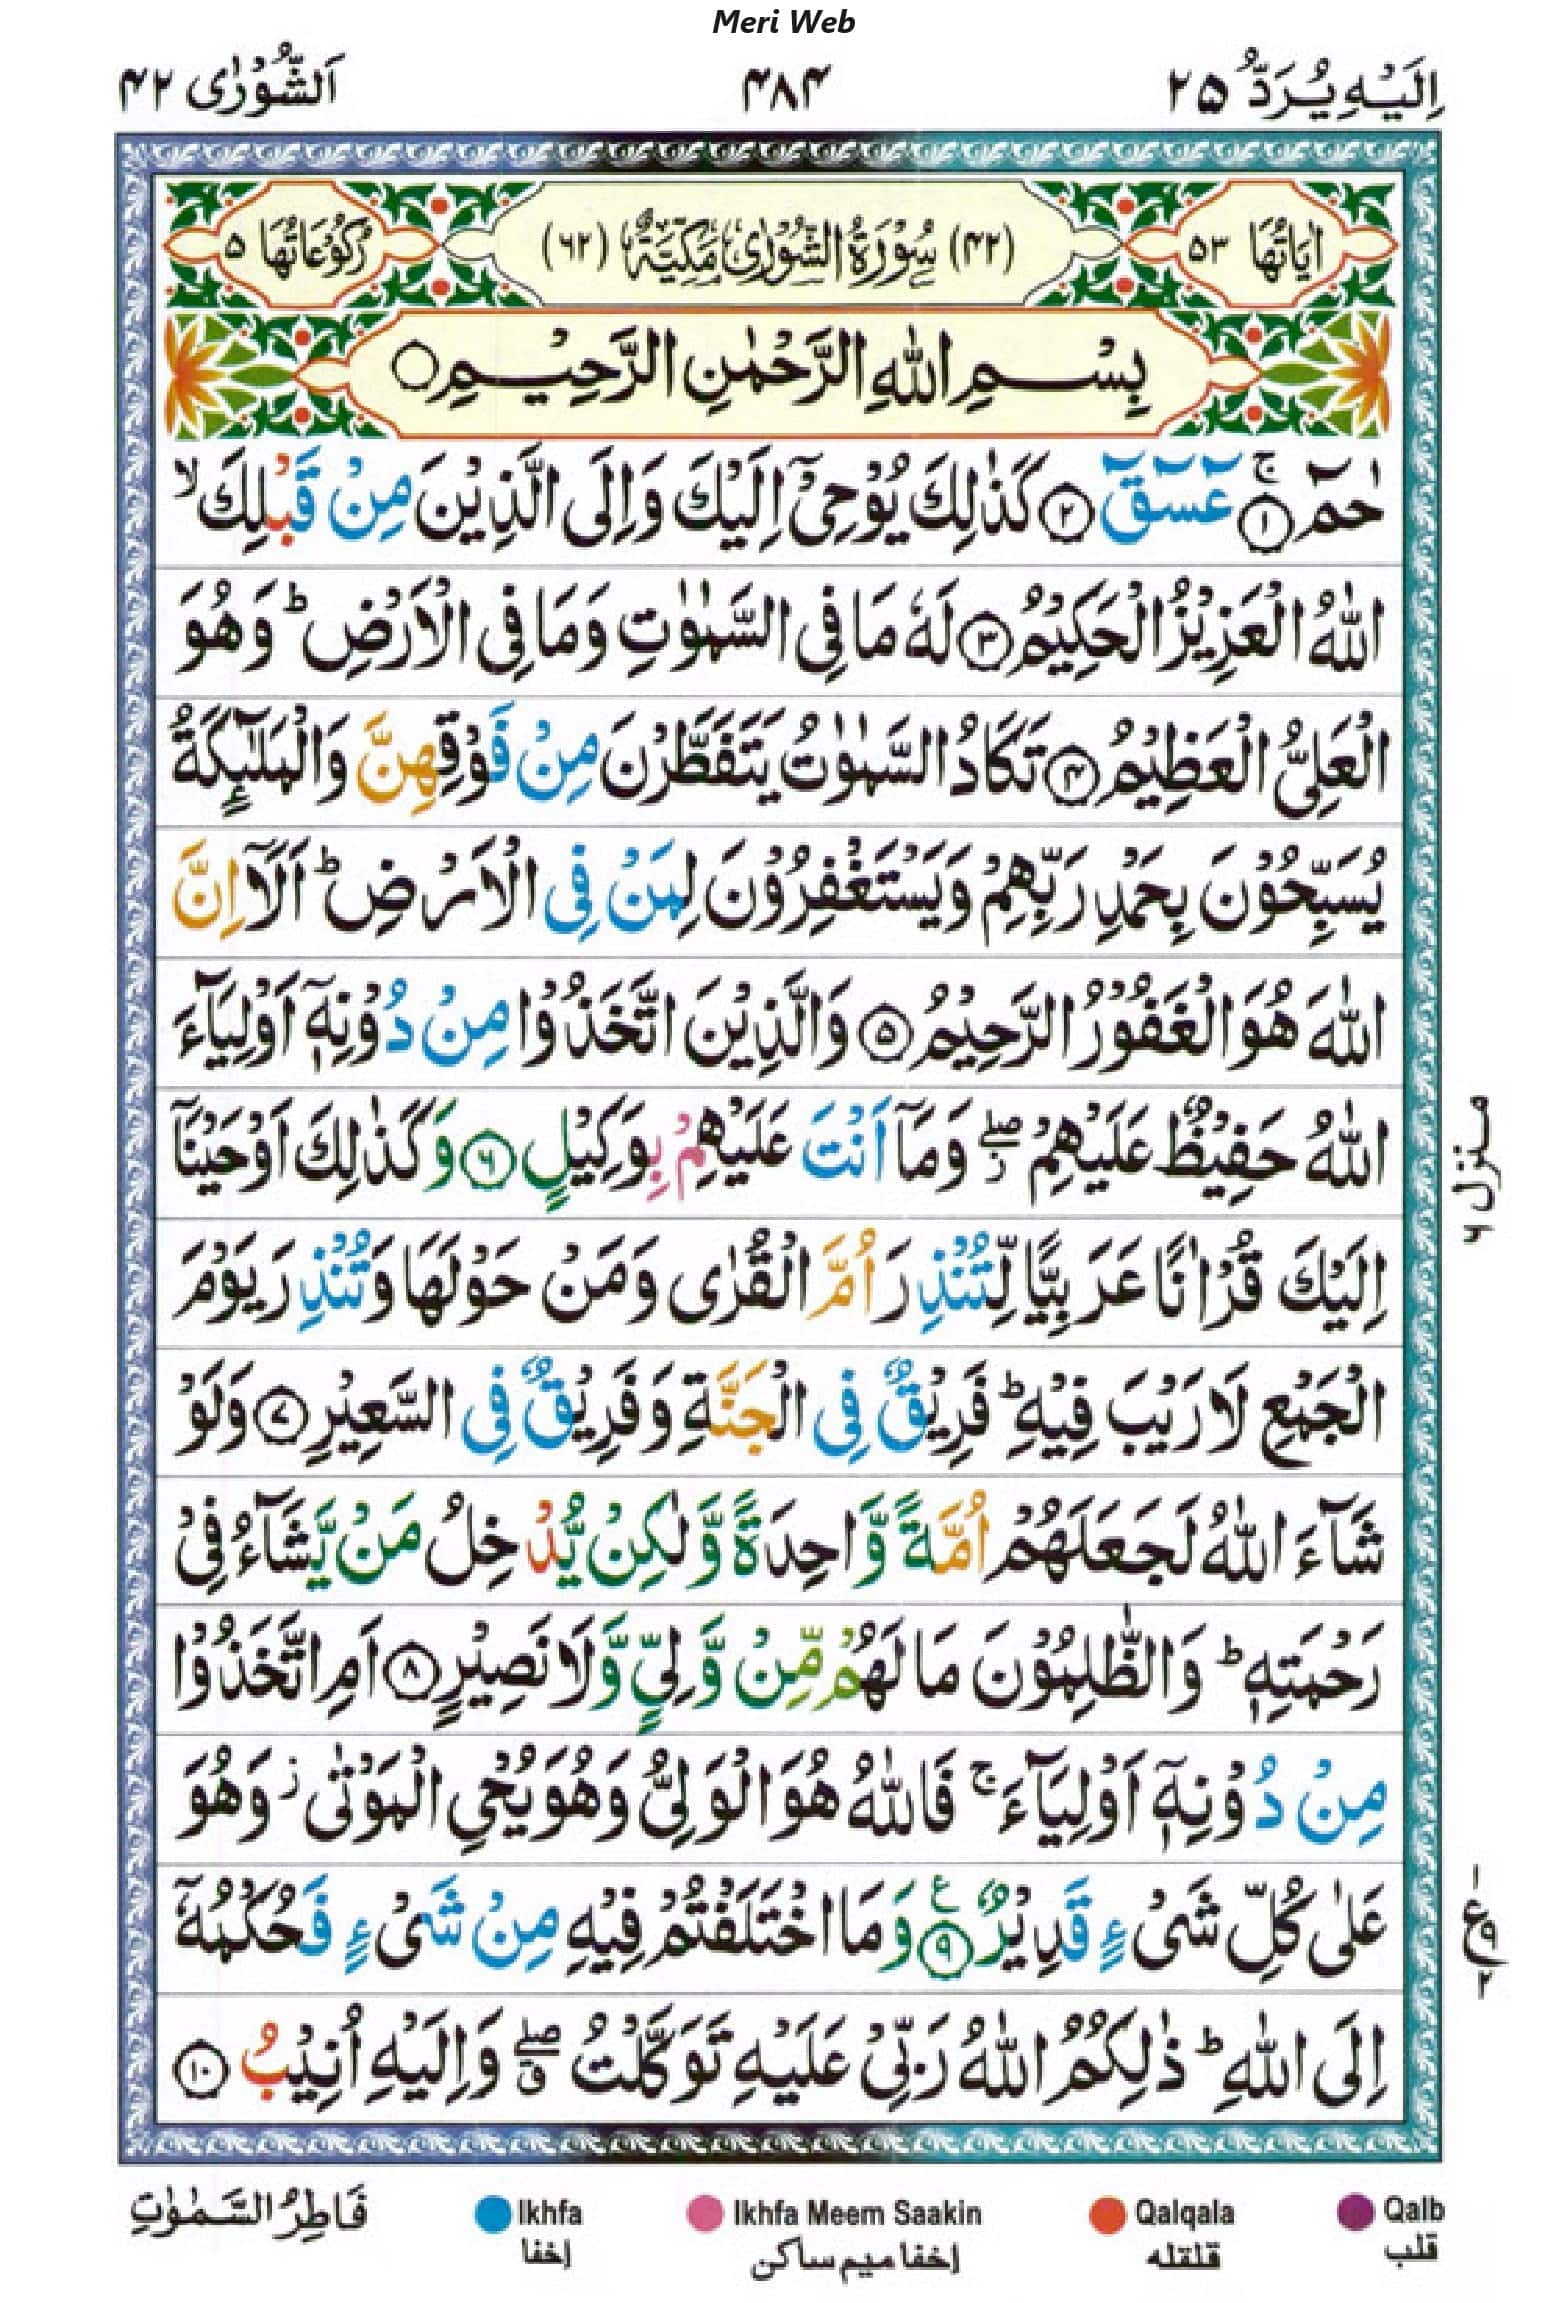 Meri Web
اِلَیْهِ یُرَدُّ ۲۵ ۴۸۴ اَلشُّوْرٰی ۴۲
اٰیَاتُهَا ۵۳ (۴۲) سُوْرَةُ الشُّوْرٰی مَكِّیَّةٌ (۶۲) رُكُوْعَاتُهَا ۵
بِسْمِ اللّٰهِ الرَّحْمٰنِ الرَّحِیْمِ ○
حٰمٓ ۚ﴿۱﴾ عٓسٓقٓ ﴿۲﴾ كَذٰلِكَ یُوْحِیْۤ اِلَیْكَ وَاِلَی الَّذِیْنَ مِنْ قَبْلِكَ ۙ
اللّٰهُ الْعَزِیْزُ الْحَكِیْمُ ﴿۳﴾ لَهٗ مَا فِی السَّمٰوٰتِ وَمَا فِی الْاَرْضِ ؕ وَهُوَ
الْعَلِیُّ الْعَظِیْمُ ﴿۴﴾ تَكَادُ السَّمٰوٰتُ یَتَفَطَّرْنَ مِنْ فَوْقِهِنَّ وَالْمَلٰٓىِٕكَةُ
یُسَبِّحُوْنَ بِحَمْدِ رَبِّهِمْ وَیَسْتَغْفِرُوْنَ لِمَنْ فِی الْاَرْضِ ؕ اَلَاۤ اِنَّ
اللّٰهَ هُوَ الْغَفُوْرُ الرَّحِیْمُ ﴿۵﴾ وَالَّذِیْنَ اتَّخَذُوْا مِنْ دُوْنِهٖۤ اَوْلِیَآءَ
اللّٰهُ حَفِیْظٌ عَلَیْهِمْ ۖ وَمَاۤ اَنْتَ عَلَیْهِمْ بِوَكِیْلٍ ﴿۶﴾ وَكَذٰلِكَ اَوْحَیْنَاۤ
اِلَیْكَ قُرْاٰنًا عَرَبِیًّا لِّتُنْذِرَ اُمَّ الْقُرٰی وَمَنْ حَوْلَهَا وَتُنْذِرَ یَوْمَ
الْجَمْعِ لَا رَیْبَ فِیْهِ ؕ فَرِیْقٌ فِی الْجَنَّةِ وَفَرِیْقٌ فِی السَّعِیْرِ ﴿۷﴾ وَلَوْ
شَآءَ اللّٰهُ لَجَعَلَهُمْ اُمَّةً وَّاحِدَةً وَّلٰكِنْ یُّدْخِلُ مَنْ یَّشَآءُ فِیْ
رَحْمَتِهٖ ؕ وَالظّٰلِمُوْنَ مَا لَهُمْ مِّنْ وَّلِیٍّ وَّلَا نَصِیْرٍ ﴿۸﴾ اَمِ اتَّخَذُوْا
مِنْ دُوْنِهٖۤ اَوْلِیَآءَ ۚ فَاللّٰهُ هُوَ الْوَلِیُّ وَهُوَ یُحْیِ الْمَوْتٰی ؗ وَهُوَ
عَلٰی كُلِّ شَیْءٍ قَدِیْرٌ ﴿۹﴾ ع وَمَا اخْتَلَفْتُمْ فِیْهِ مِنْ شَیْءٍ فَحُكْمُهٗۤ
اِلَی اللّٰهِ ؕ ذٰلِكُمُ اللّٰهُ رَبِّیْ عَلَیْهِ تَوَكَّلْتُ ۖ ق وَاِلَیْهِ اُنِیْبُ ﴿۱۰﴾
منزل ۶
۱ ع ۹ ۲
فَاطِرُ السَّمٰوٰتِ
Ikhfa
اخفا
Ikhfa Meem Saakin
اخفا میم ساکن
Qalqala
قلقله
Qalb
قلب